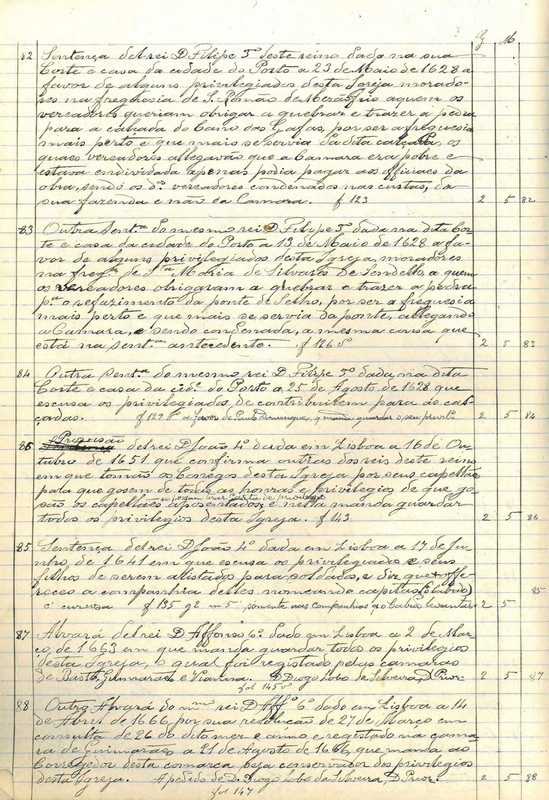 g M
82 Sentença del rei D Filipe 5º deste reino dada na sua
Corte e casa da cidade do Porto a 23 de Maio de 1628 a
favor de alguns privilegiados desta Igreja morado-
res na freguesia de S. Romão de Mezãofrio aquem os
vereadores queriam obrigar a quebrar e trazer a pedra
para a calçada do Cano das Gafas, por ser a freguesia
mais perto e que mais se servia da dita calçada, os
quaes vereadores allegavão que a Camara era pobre e
estava endividada apenas podia pagar aos officiaes da
obra, sendo os dºs vereadores condenados nas custas, da
sua fazenda e não da Camara. f 123 2 5 82
83 Outra Sentª do mesmo rei D. Filipe 5º dada na dita Cor-
te e casa da cidade do Porto a 13 de Maio de 1628 a fa-
vor de alguns privilegiados desta Igreja, moradores
na fregª de Sta Maria de Silvares de Sendello, a quem
os vereadores obrigaram a quebrar e trazer a pedra
pª o refazimento da ponte de Selho, por ser a freguesia
mais perto e que mais se servia da ponte, allegando
a Camara, e sendo condenada, a mesma causa que
está na sentª antecedente. f 126 vº 2 5 83
84 Outra Sentª do mesmo rei D. Filipe 5º dada, na dita
Corte e casa da cidº do Porto a 25 de Agosto de 1628 que
escusa os privilegiados de contribuirem para as cal-
çadas. f 129 vº a favor de Paulo Domingues, q mandou guardar o seu privilº. 2 5 84
86 Provisão del rei D João 4º dada em Lisboa a 16 de Ou-
tubro de 1651 que confirma outras dos reis deste reino
em que tomão os Conegos desta Igreja por seus capellães
para que gosem de todas as honras e privilegios de que go-
são os capellães apresentados, e nella manda guardar
todos os privilegios desta Igreja. f 143 2 5 86
85 Sentença del rei D João 4º dada em Lisboa a 17 de Ju-
nho, de 1641 em que escusa os privilegiados e seus
filhos de serem alistados para soldados, e diz que offe-
receo a companhia destes nomeando capitão (e cabrio) 85
é curiosa f 135 g 2 m 5 somente nas Companhias q o Cabido levantar 2 5
87 Alvará del rei D. Affonso 6º dado em Lisboa a 2 de Mar-
ço, de 1663 em que manda guardar todos os privilegios
desta Igreja, o qual foi registado pelas camaras
de Basto, Guimarães e Vianna. D Diogo Lobo da Silveira, D. Prior. 2 5 87
fol 145 vº
88 Outro Alvará do mmº rei D Affº 6º dado em Lisboa a 14
de Abril de 1666, por sua resolução de 27 de Março em
consulta de 26 do dito mez e anno e registado na cama-
ra de Guimarães a 21 de Agosto de 1666, que manda ao
Corregedor desta comarca seja conservador dos privilegios
desta Igreja. A pedido de D. Diogo Lobo da Silveira, D. Prior. 2 5 88
fol 147